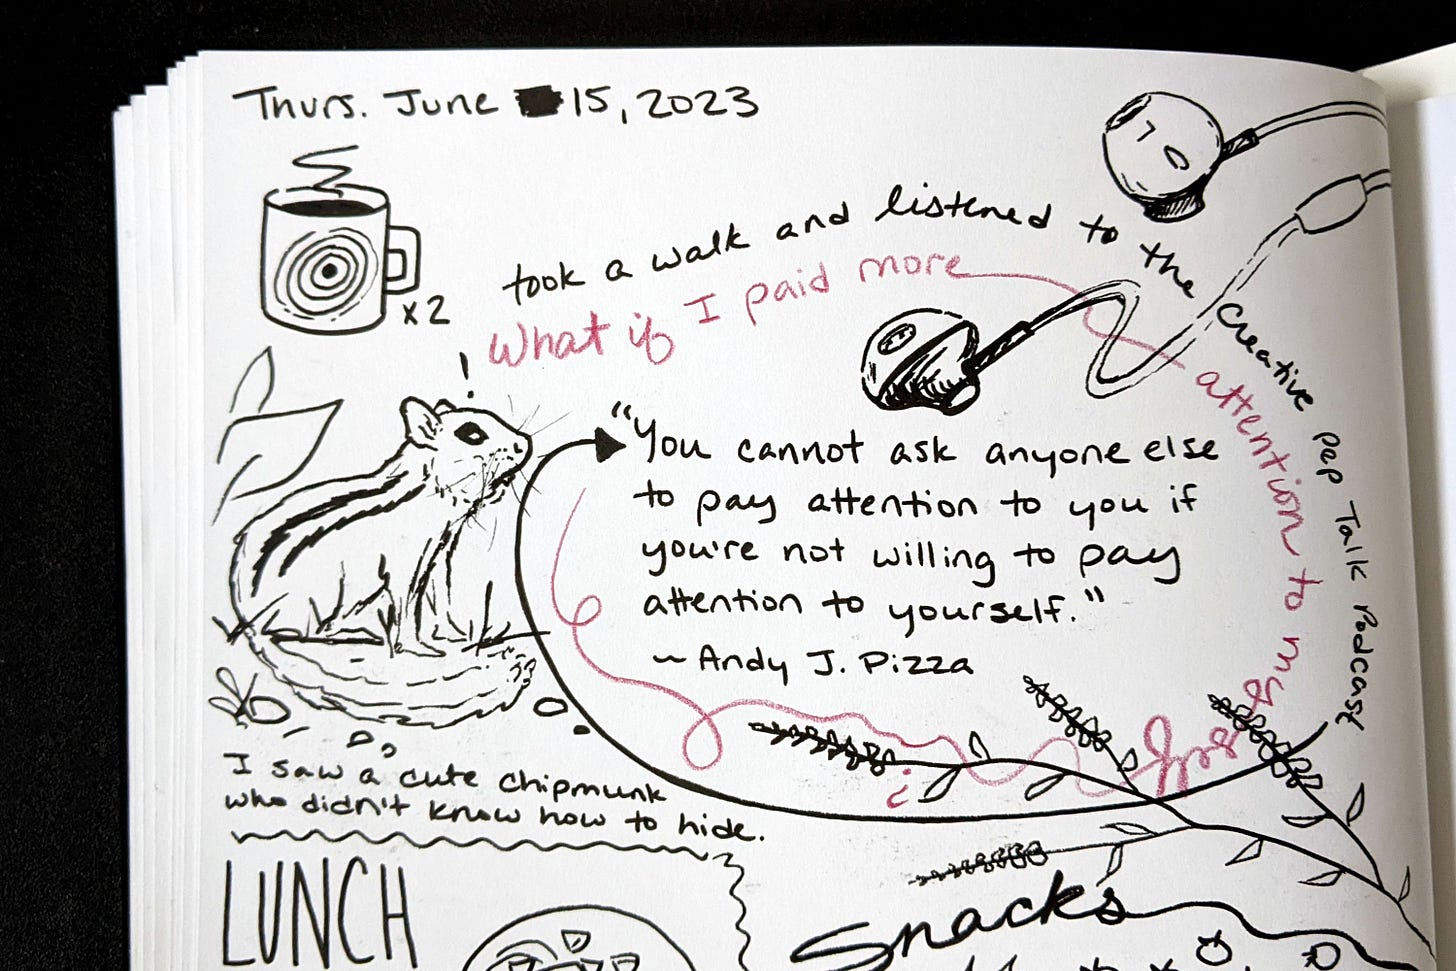 Thurs. June 15, 2023
x2
took a walk and listened to the Creative Pep Talk Podcast
What if I paid more attention to my self?
!
"You cannot ask anyone else
to pay attention to you if
you're not willing to pay
attention to yourself."
~ Andy J. Pizza
I saw a cute chipmunk
who didn't know how to hide.
LUNCH
Snacks